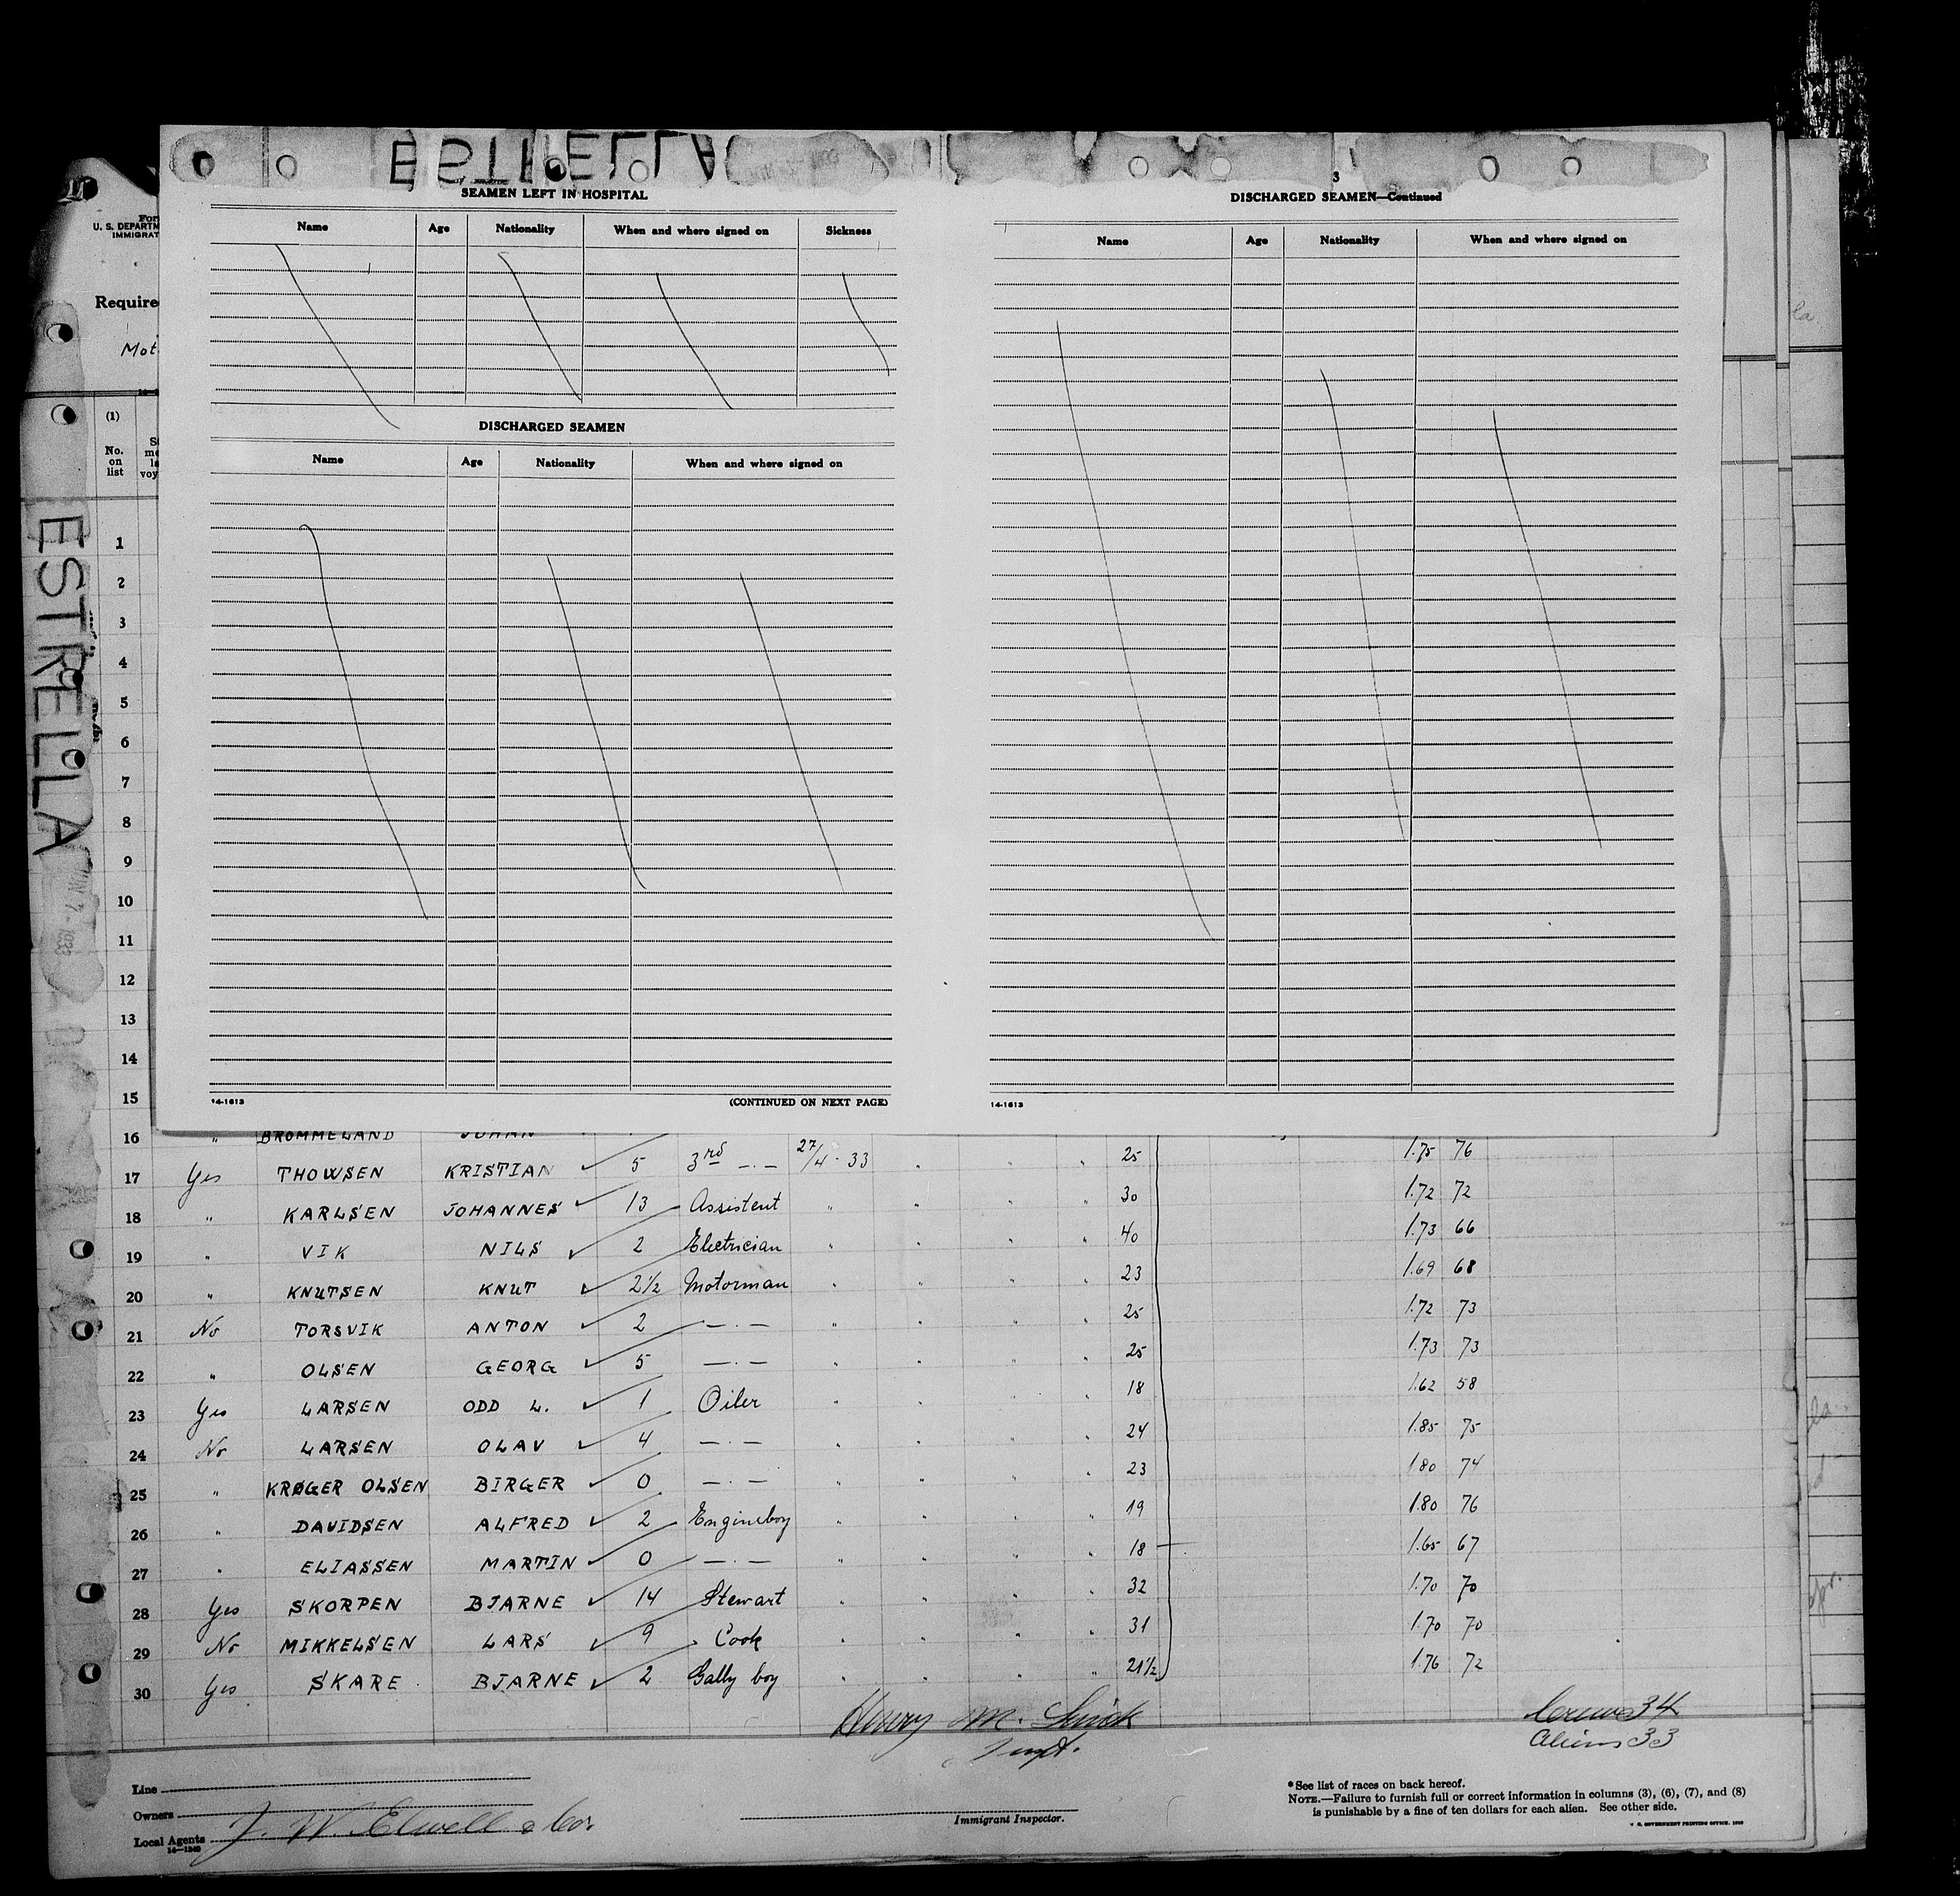 ESTRELLA
SEAMEN LEFT IN HOSPITAL
Name Age Nationality When and where signed on Sickness
DISCHARGED SEAMEN
Name Age Nationality When and where signed on
14-1613 (CONTINUED ON NEXT PAGE)
3
DISCHARGED SEAMEN—Continued
Name Age Nationality When and where signed on
14-1613
U. S. DEPARTM
IMMIGRAT
Require
Mot
(1)
No.
on
list
voy
ESTRELLA
1
2
3
4
5
6
7
8
9
10
11
12
13
14
15
16 " BRØMMELAND JOHAN
17 Yes THOWSEN KRISTIAN ✓ 5 3rd —·— 27/4·33 " " " 25 1.75 76
18 " KARLSEN JOHANNES ✓ 13 Assistent " " " " 30 1.72 72
19 " VIK NILS ✓ 2 Electrician " " " " 40 1.73 66
20 " KNUTSEN KNUT ✓ 2½ Motorman " " " " 23 1.69 68
21 No TORSVIK ANTON ✓ 2 —·— " " " " 25 1.72 73
22 " OLSEN GEORG ✓ 5 —·— " " " " 25 1.73 73
23 Yes LARSEN ODD L. ✓ 1 Oiler " " " " 18 1.62 58
24 No LARSEN OLAV ✓ 4 —·— " " " " 24 1.85 75
25 " KRØGER OLSEN BIRGER ✓ 0 —·— " " " " 23 1.80 74
26 " DAVIDSEN ALFRED ✓ 2 Engineboy " " " " 19 1.80 76
27 " ELIASSEN MARTIN ✓ 0 —·— " " " " 18 1.65 67
28 Yes SKORPEN BJARNE ✓ 14 Stewart " " " " 32 1.70 70
29 No MIKKELSEN LARS ✓ 9 Cook " " " " 31 1.70 70
30 Yes SKARE BJARNE ✓ 2 Gally boy " " " " 21½ 1.76 72
Henry M.
Inspt.
Crew 34
Aliens 33
Line
Owners
Local Agents J. W. Elwell & Co.
14—1240
Immigrant Inspector.
*See list of races on back hereof.
NOTE.—Failure to furnish full or correct information in columns (3), (6), (7), and (8)
is punishable by a fine of ten dollars for each alien. See other side.